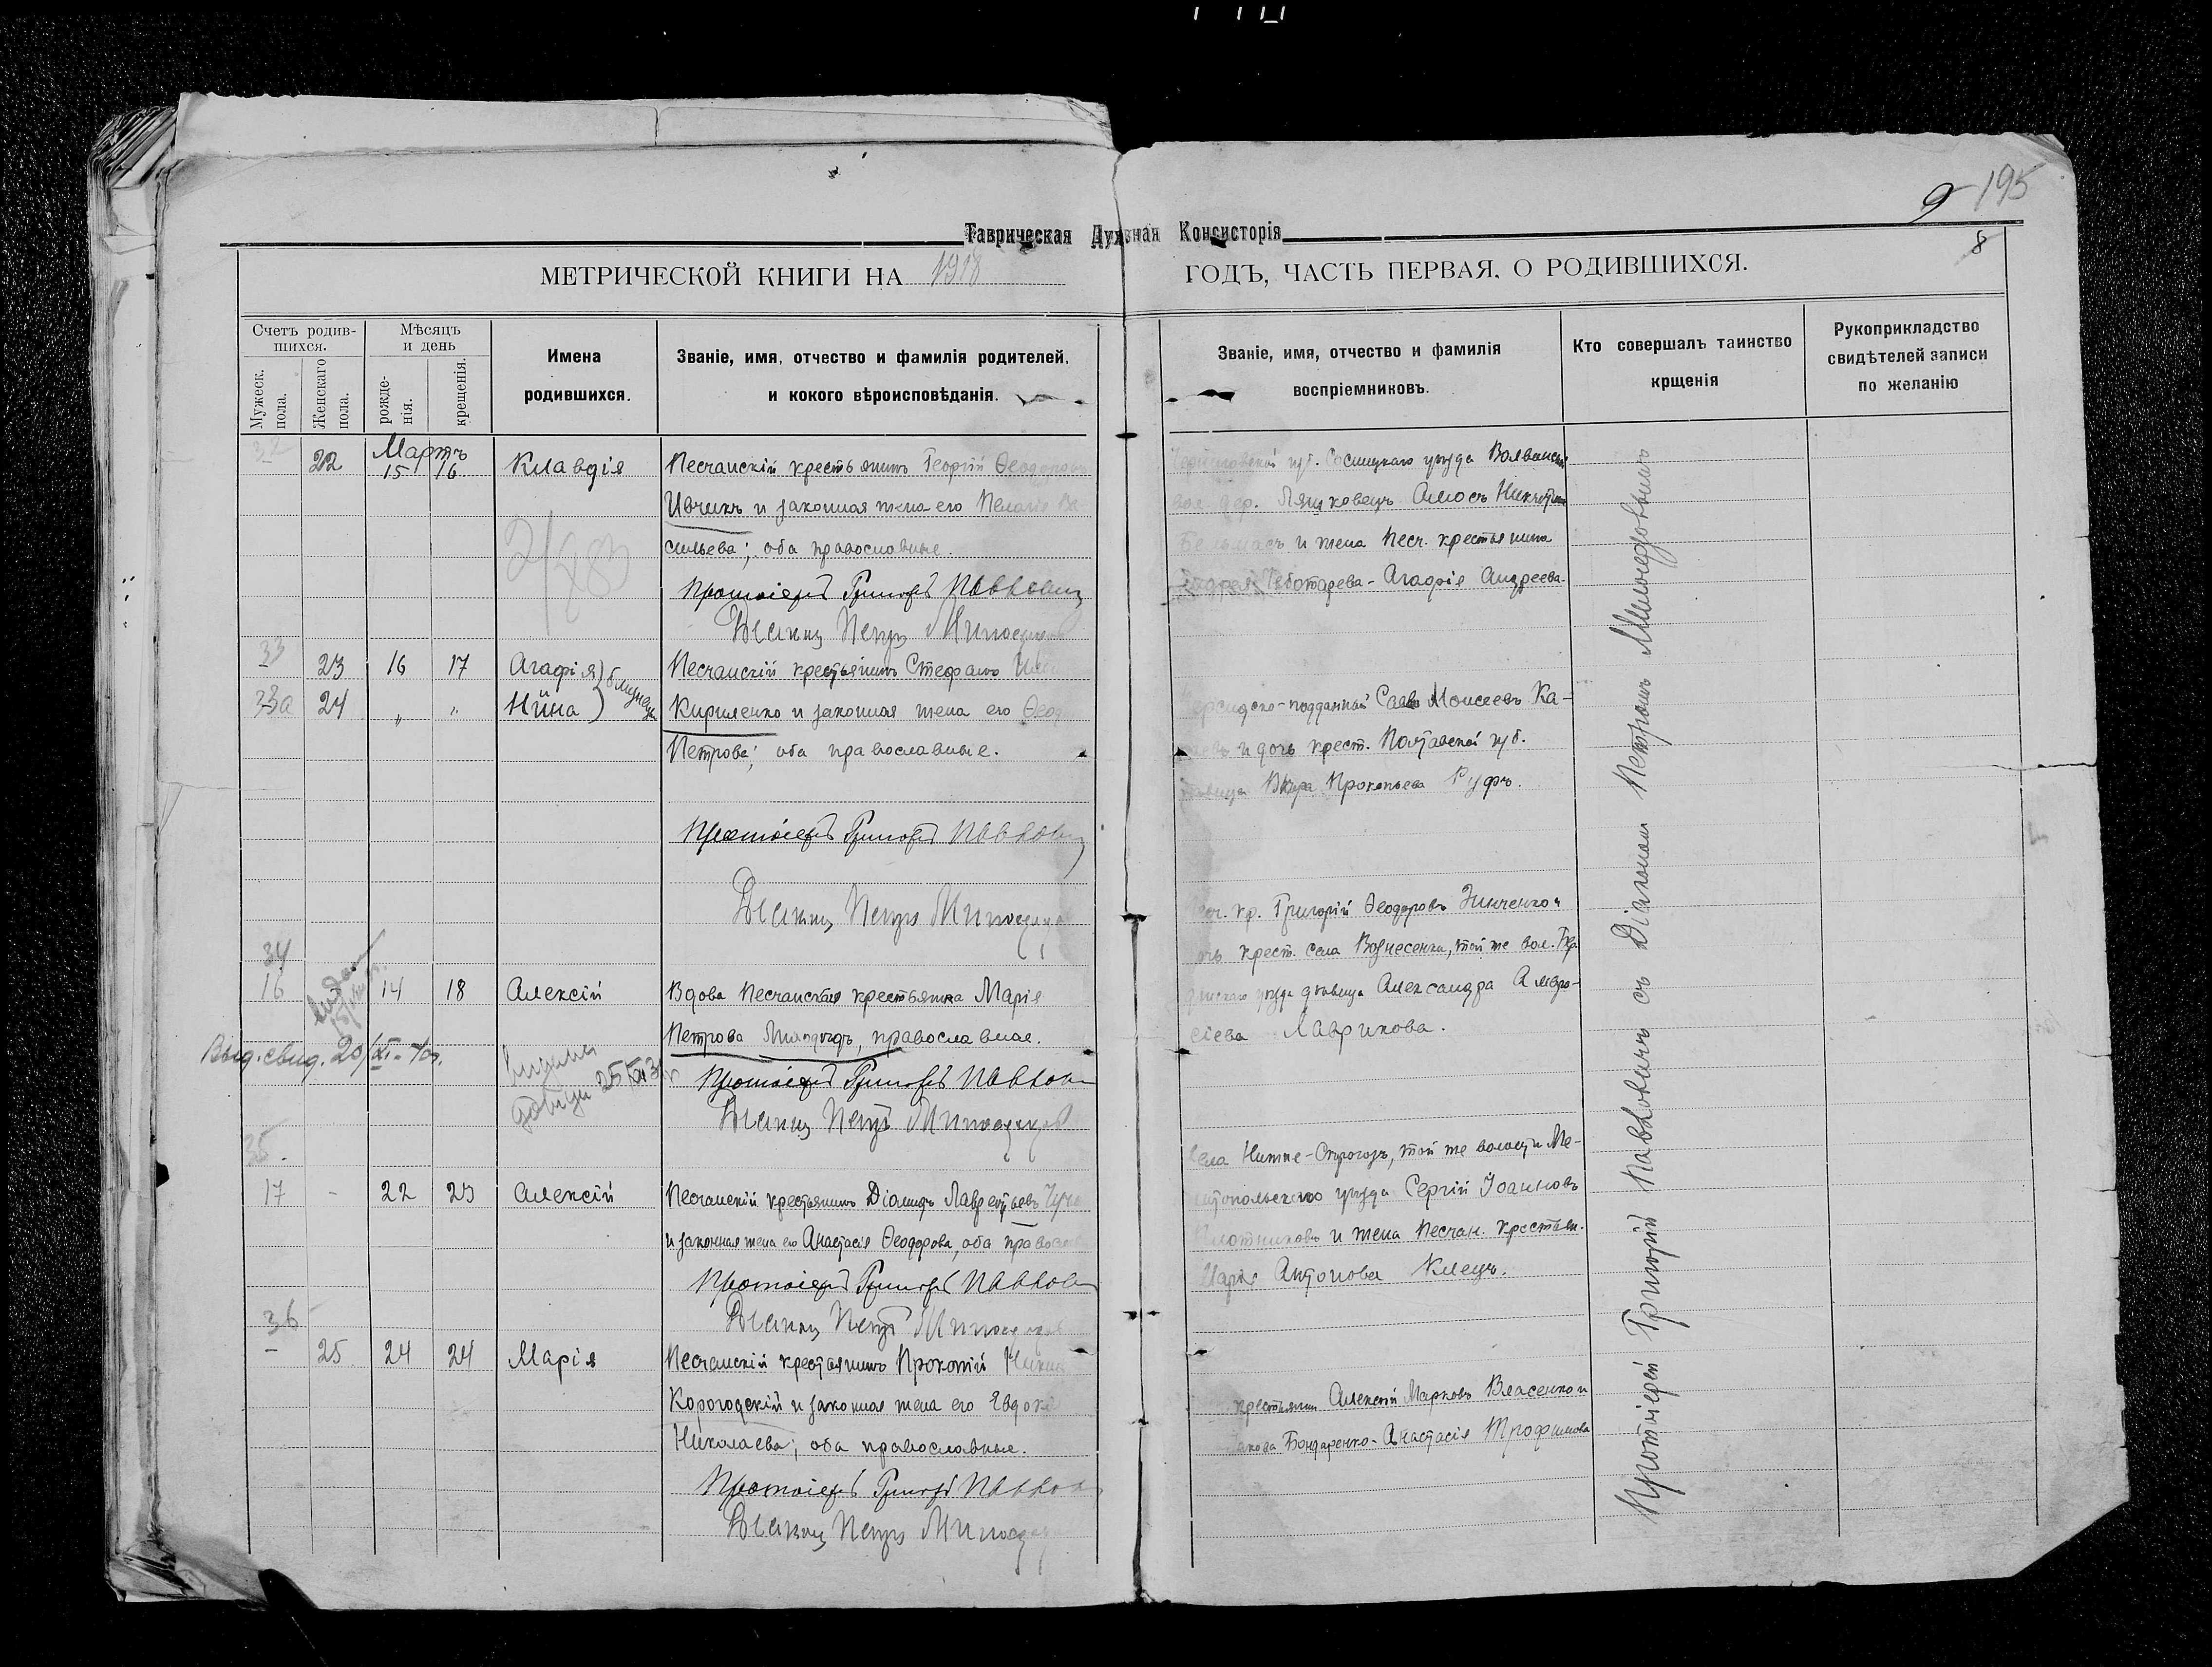 9 195
8
Таврическая Духовная Консисторія
МЕТРИЧЕСКОЙ КНИГИ НА 1918 ГОДЪ, ЧАСТЬ ПЕРВАЯ. О РОДИВШИХСЯ.
Счетъ родив-
шихся.
Мужеск.
пола.
Женскаго
пола.
Мѣсяцъ
и день
рожде-
нія.
крещенія.
Имена
родившихся.
Званіе, имя, отчество и фамилія родителей,
и кокого вѣроисповѣданія.
Званіе, имя, отчество и фамилія
воспріемниковъ.
Кто совершалъ таинство
крщенія
Рукоприкладство
свидѣтелей записи
по желанію
Мартъ
32 22 15 16 Клавдія
Песчанскій крестьянинъ Георгій Ѳеодоровъ
Ивчикъ и законная жена его Пелагія Ва
сильева; оба православные.
Протоіерей Григорій Павловичъ
Діаконъ Петръ Милосердовъ
губ. Сосницкаго уѣзда
дер. Амосъ
и жена Песч. крестьянина
Чеботарева - Агафія Андреева.
33 23 16 17 Агафія
33а 24 " " Нина } близнецы
Песчанскій крестьянинъ Стефанъ
Кириленко и законная жена его
Петрова; оба православные.
Протоіерей Григорій Павловичъ
Діаконъ Петръ Милосердовъ
Персидско-подданный Савва Моисеевъ Ка-
и дочь крест. Полтавской губ.
дѣвица Вѣра Прокопьева Руфъ.
34
16 14 18 Алексій
Вдова Песчанская крестьянка Марія
Петрова, православная.
Выд. свид. 20/XI-40г.
Протоіерей Григорій Павловичъ
Діаконъ Петръ Милосердовъ
кр. Григорій Ѳеодоровъ Зинченко и
дочь крест. села Вознесенки, той же вол.
уѣзда дѣвица Александра Амвро-
сіева Лаврикова.
35.
17 - 22 23 Алексій
Песчанскій крестьянинъ Діомидъ Лаврентьевъ
и законная жена его Анастасія Ѳеодорова, оба
Протоіерей Григорій Павловичъ
Діаконъ Петръ Милосердовъ
Села Нижне-Сѣрогозъ, той же волости Ме-
литопольскаго уѣзда Сергій Іоанновъ
Плотниковъ и жена Песчан. крестьян.
Марія Антонова Клецъ.
36
- 25 24 24 Марія
Песчанскій крестьянинъ Прокопій
Корогодскій и законная жена его Евдокія
Николаева; оба православные.
Протоіерей Григорій Павловичъ
Діаконъ Петръ Милосердовъ
крестьянин Алексій Марковъ Власенко и
Бондаренко - Анастасія Трофимова
Протоіерей Григорій Павловичъ съ Діакономъ Петромъ Милосердовымъ